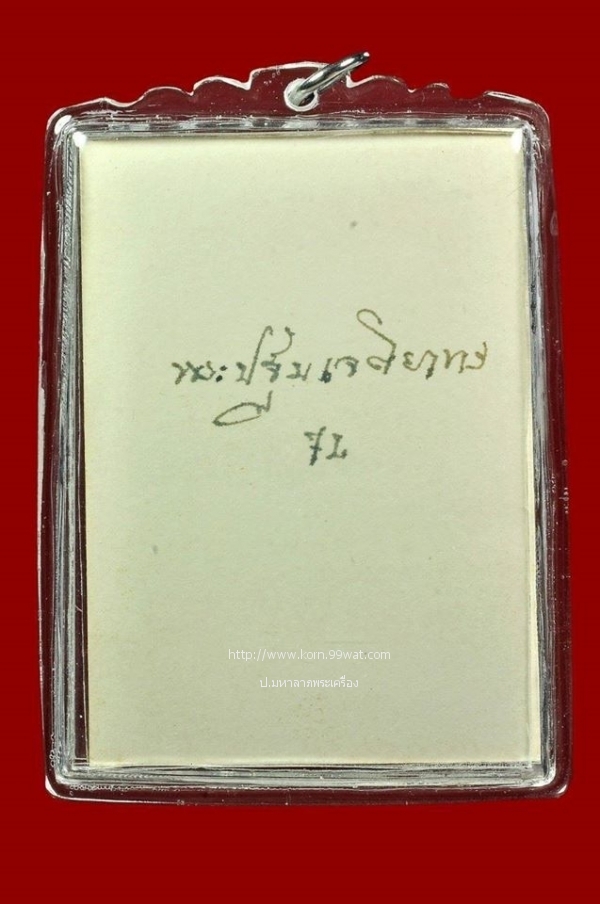 พระปฐมเจติยาทร
http://www.korn.99wat.com
ป.มหาลาภพระเครื่อง